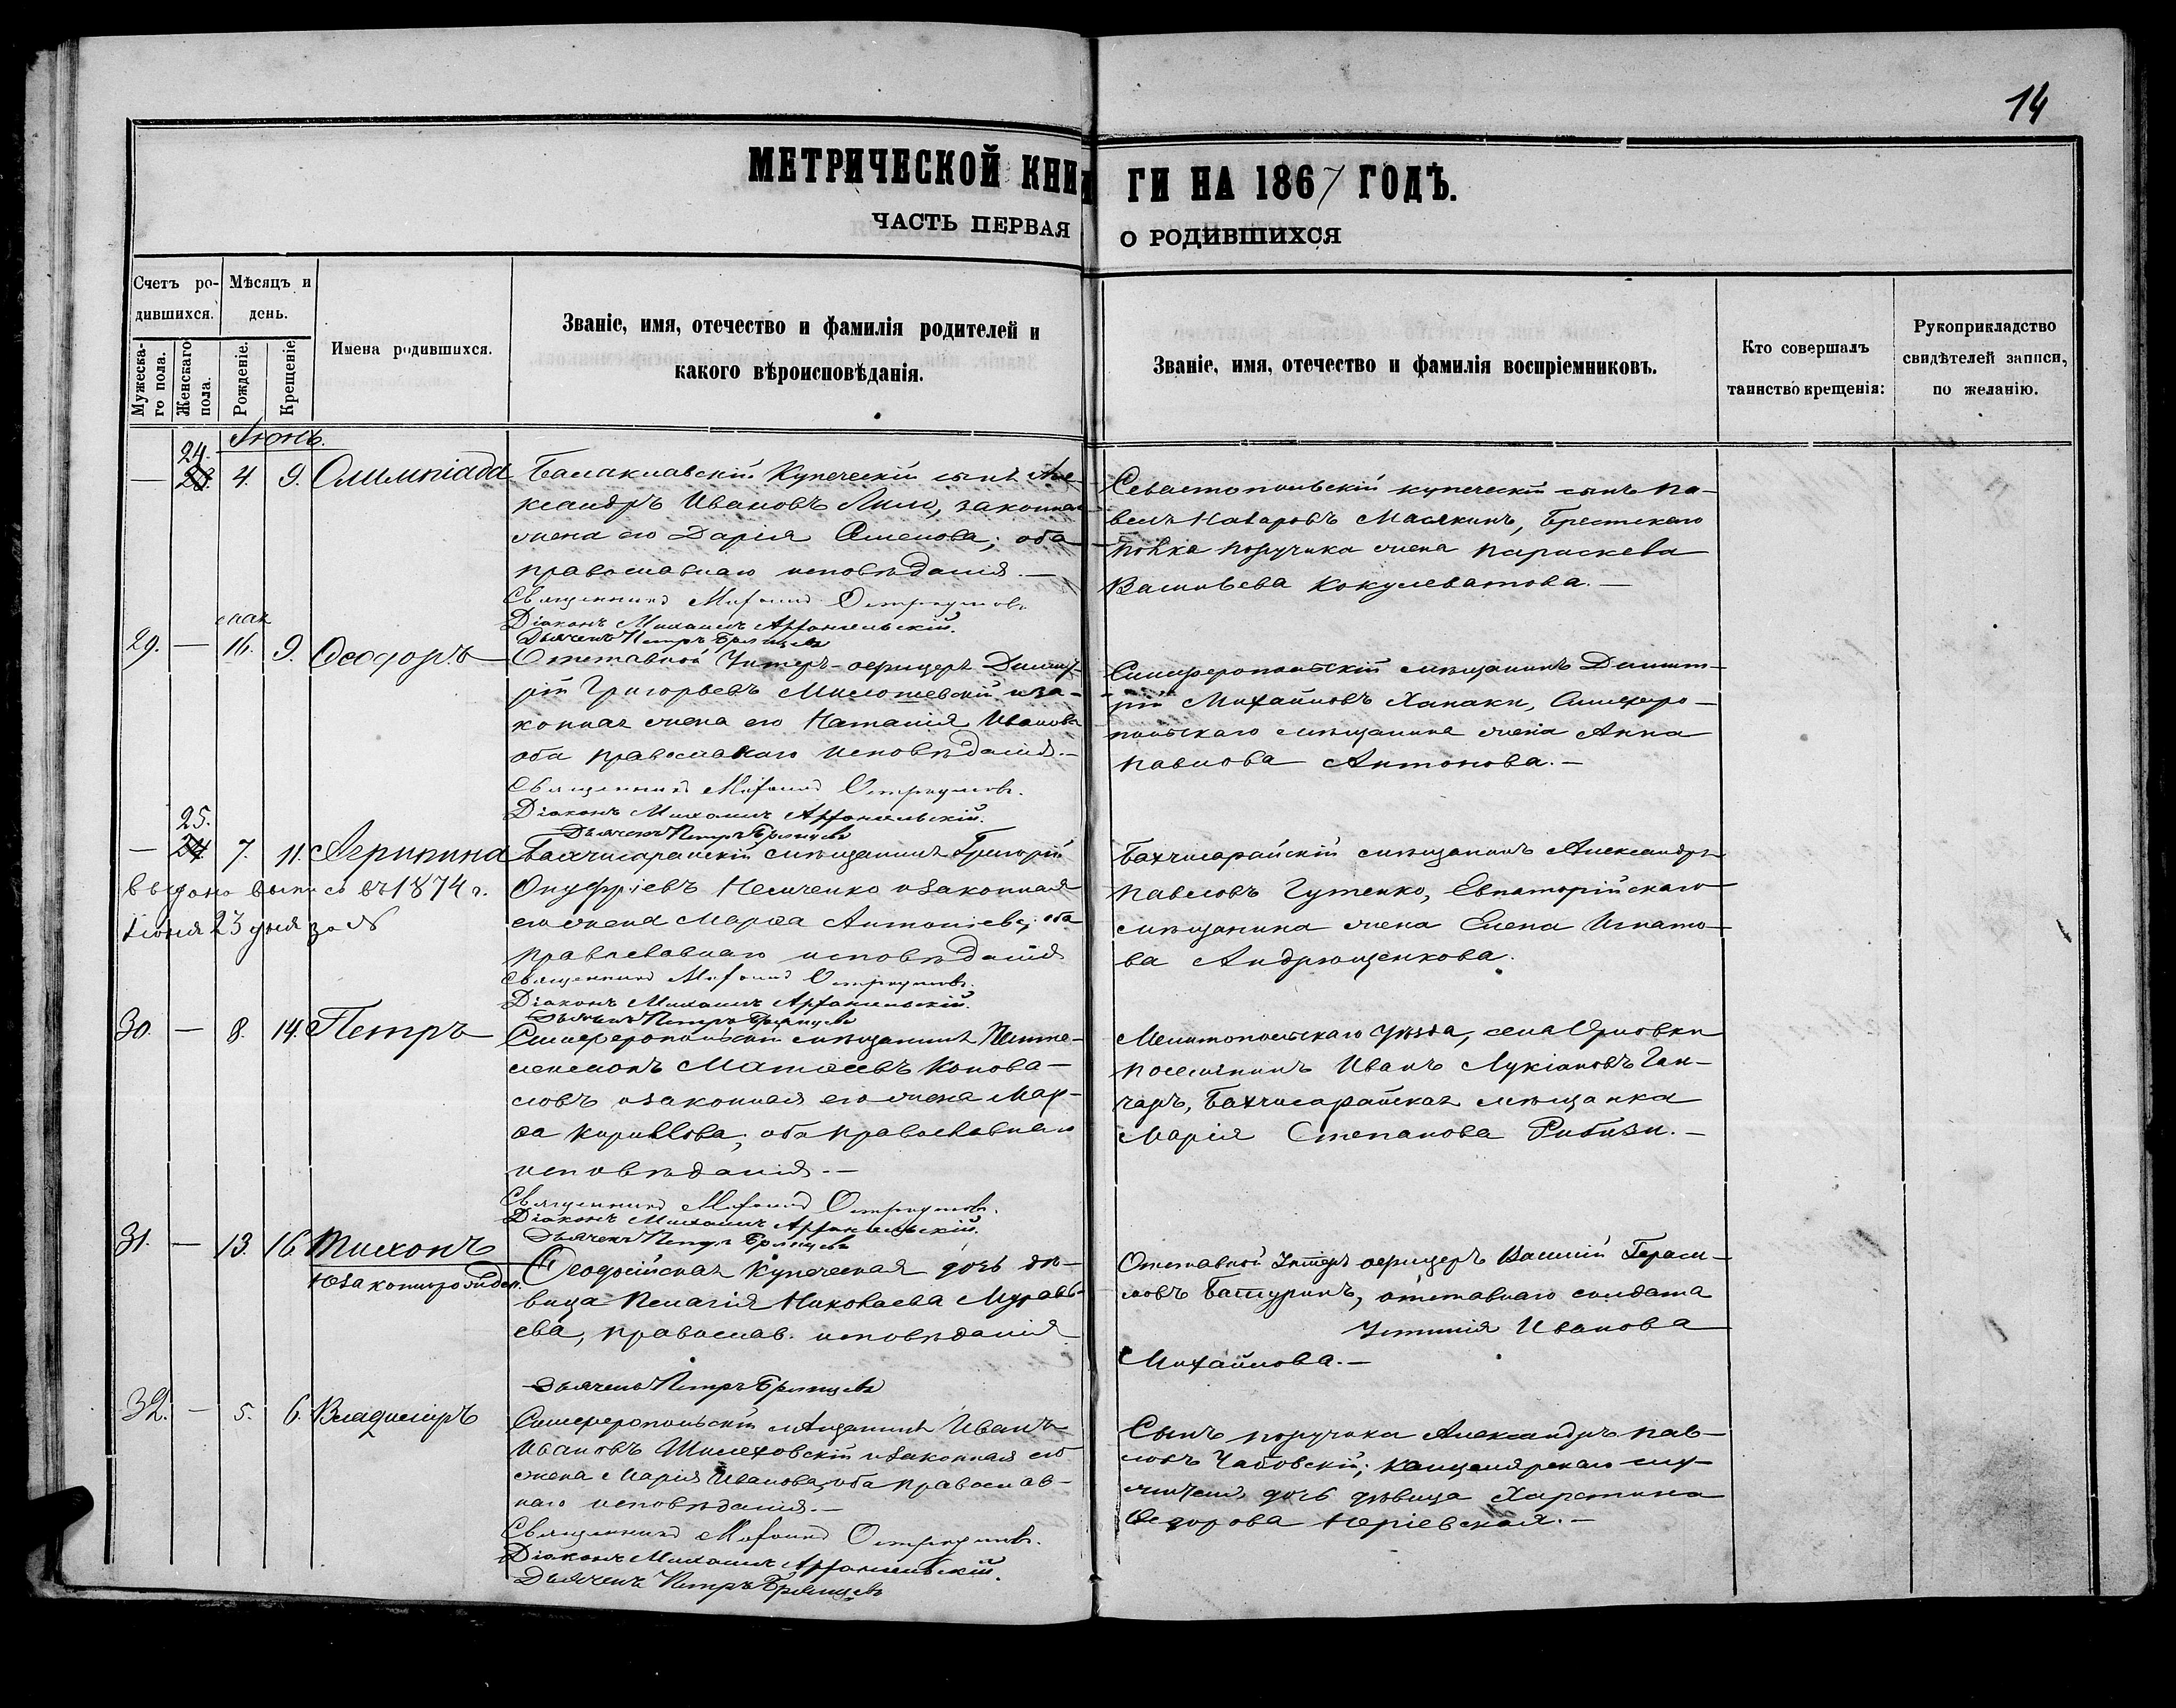 14
МЕТРИЧЕСКОЙ КНИ
ГИ НА 1867 ГОДЪ.
ЧАСТЬ ПЕРВАЯ
О РОДИВШИХСЯ
Счетъ ро-
дившихся.
Мужеска-
го пола.
Женскаго
пола.
Мѣсяцъ и
день.
Рожденіе.
Крещеніе.
Имена родившихся.
Званіе, имя, отечество и фамилія родителей и
какого вѣроисповѣданія.
Званіе, имя, отечество и фамилія воспріемниковъ.
Кто совершалъ
таинство крещенія:
Рукоприкладство
свидѣтелей записи,
по желанію.
Іюнь.
24.
— 23. 4. 9. Олимпіада
Балаклавскій Купеческій сынъ Але-
ксандръ Ивановъ законная
жена его Дарія Семенова; оба
православнаго исповѣданія. —
Священникъ
Діаконъ Михаилъ Архангельскій.
Дьячекъ Петръ Брянцевъ
Севастопольскій купеческій сынъ Па-
велъ Назаровъ Масякинъ, Брестскаго
полка поручика жена Параскева
Васильева —
мая
29. — 16. 9. Ѳеодоръ
Отставной Унтеръ-офицеръ Димит-
рій Григорьевъ Милошевскій и за-
конная жена его Наталія Иванова
оба православнаго исповѣданія. —
Священникъ
Діаконъ Михаилъ Архангельскій.
Дьячекъ Петръ Брянцевъ
Симферопольскій мѣщанинъ Димит-
рій Михайловъ Ханаки, Симферо-
польскаго мѣщанина жена Анна
Павлова Антонова. —
25.
— 24 7. 11. Агрипина
Выдано въ 1874 г.
Іюня 23 дня за №
Бахчисарайскій мѣщанинъ Григорій
Онуфріевъ Немченко и законная
его жена Марѳа Антоніева; оба
православнаго исповѣданія
Священникъ
Діаконъ Михаилъ Архангельскій.
Дьячекъ Петръ Брянцевъ
Бахчисарайскій мѣщанинъ Александръ
Павловъ Гутенко, Евпаторійскаго
мѣщанина жена Елена Игнато-
ва Андрющенкова.
30. — 8. 14. Петръ
Симферопольскій мѣщанинъ Панте-
леимонъ Матѳеевъ Конова-
ловъ и законная его жена Мар-
ѳа Кирилова; оба православнаго
исповѣданія. —
Священникъ
Діаконъ Михаилъ Архангельскій.
Дьячекъ Петръ Брянцевъ
Мелитопольскаго уѣзда, села
поселянинъ Иванъ Лукіановъ Ган-
чаръ, Бахчисарайская мѣщанка
Марія Степанова —
31. — 13. 16 Тихонъ
Незаконнорожден.
Ѳеодосійская Купеческая дочь дѣ-
вица Пелагія Николаева Муравь-
ева, православ. исповѣданія
Дьячекъ Петръ Брянцевъ
Отставной Унтеръ офицеръ Василій Гераси-
мовъ Батуринъ, отставнаго солдата
Устинія Иванова
Михайлова. —
32. — 5. 6. Владиміръ
Симферопольскій мѣщанинъ Иванъ
Ивановъ Шилеховскій и законная его
жена Марія Иванова, оба православ-
наго исповѣданія. —
Священникъ
Діаконъ Михаилъ Архангельскій.
Дьячекъ Петръ Брянцевъ
Сынъ поручика Александръ Пав-
ловъ Чабовскій; Канцелярскаго слу-
жителя дочь дѣвица Харитина
Ѳедорова Неріевская. —